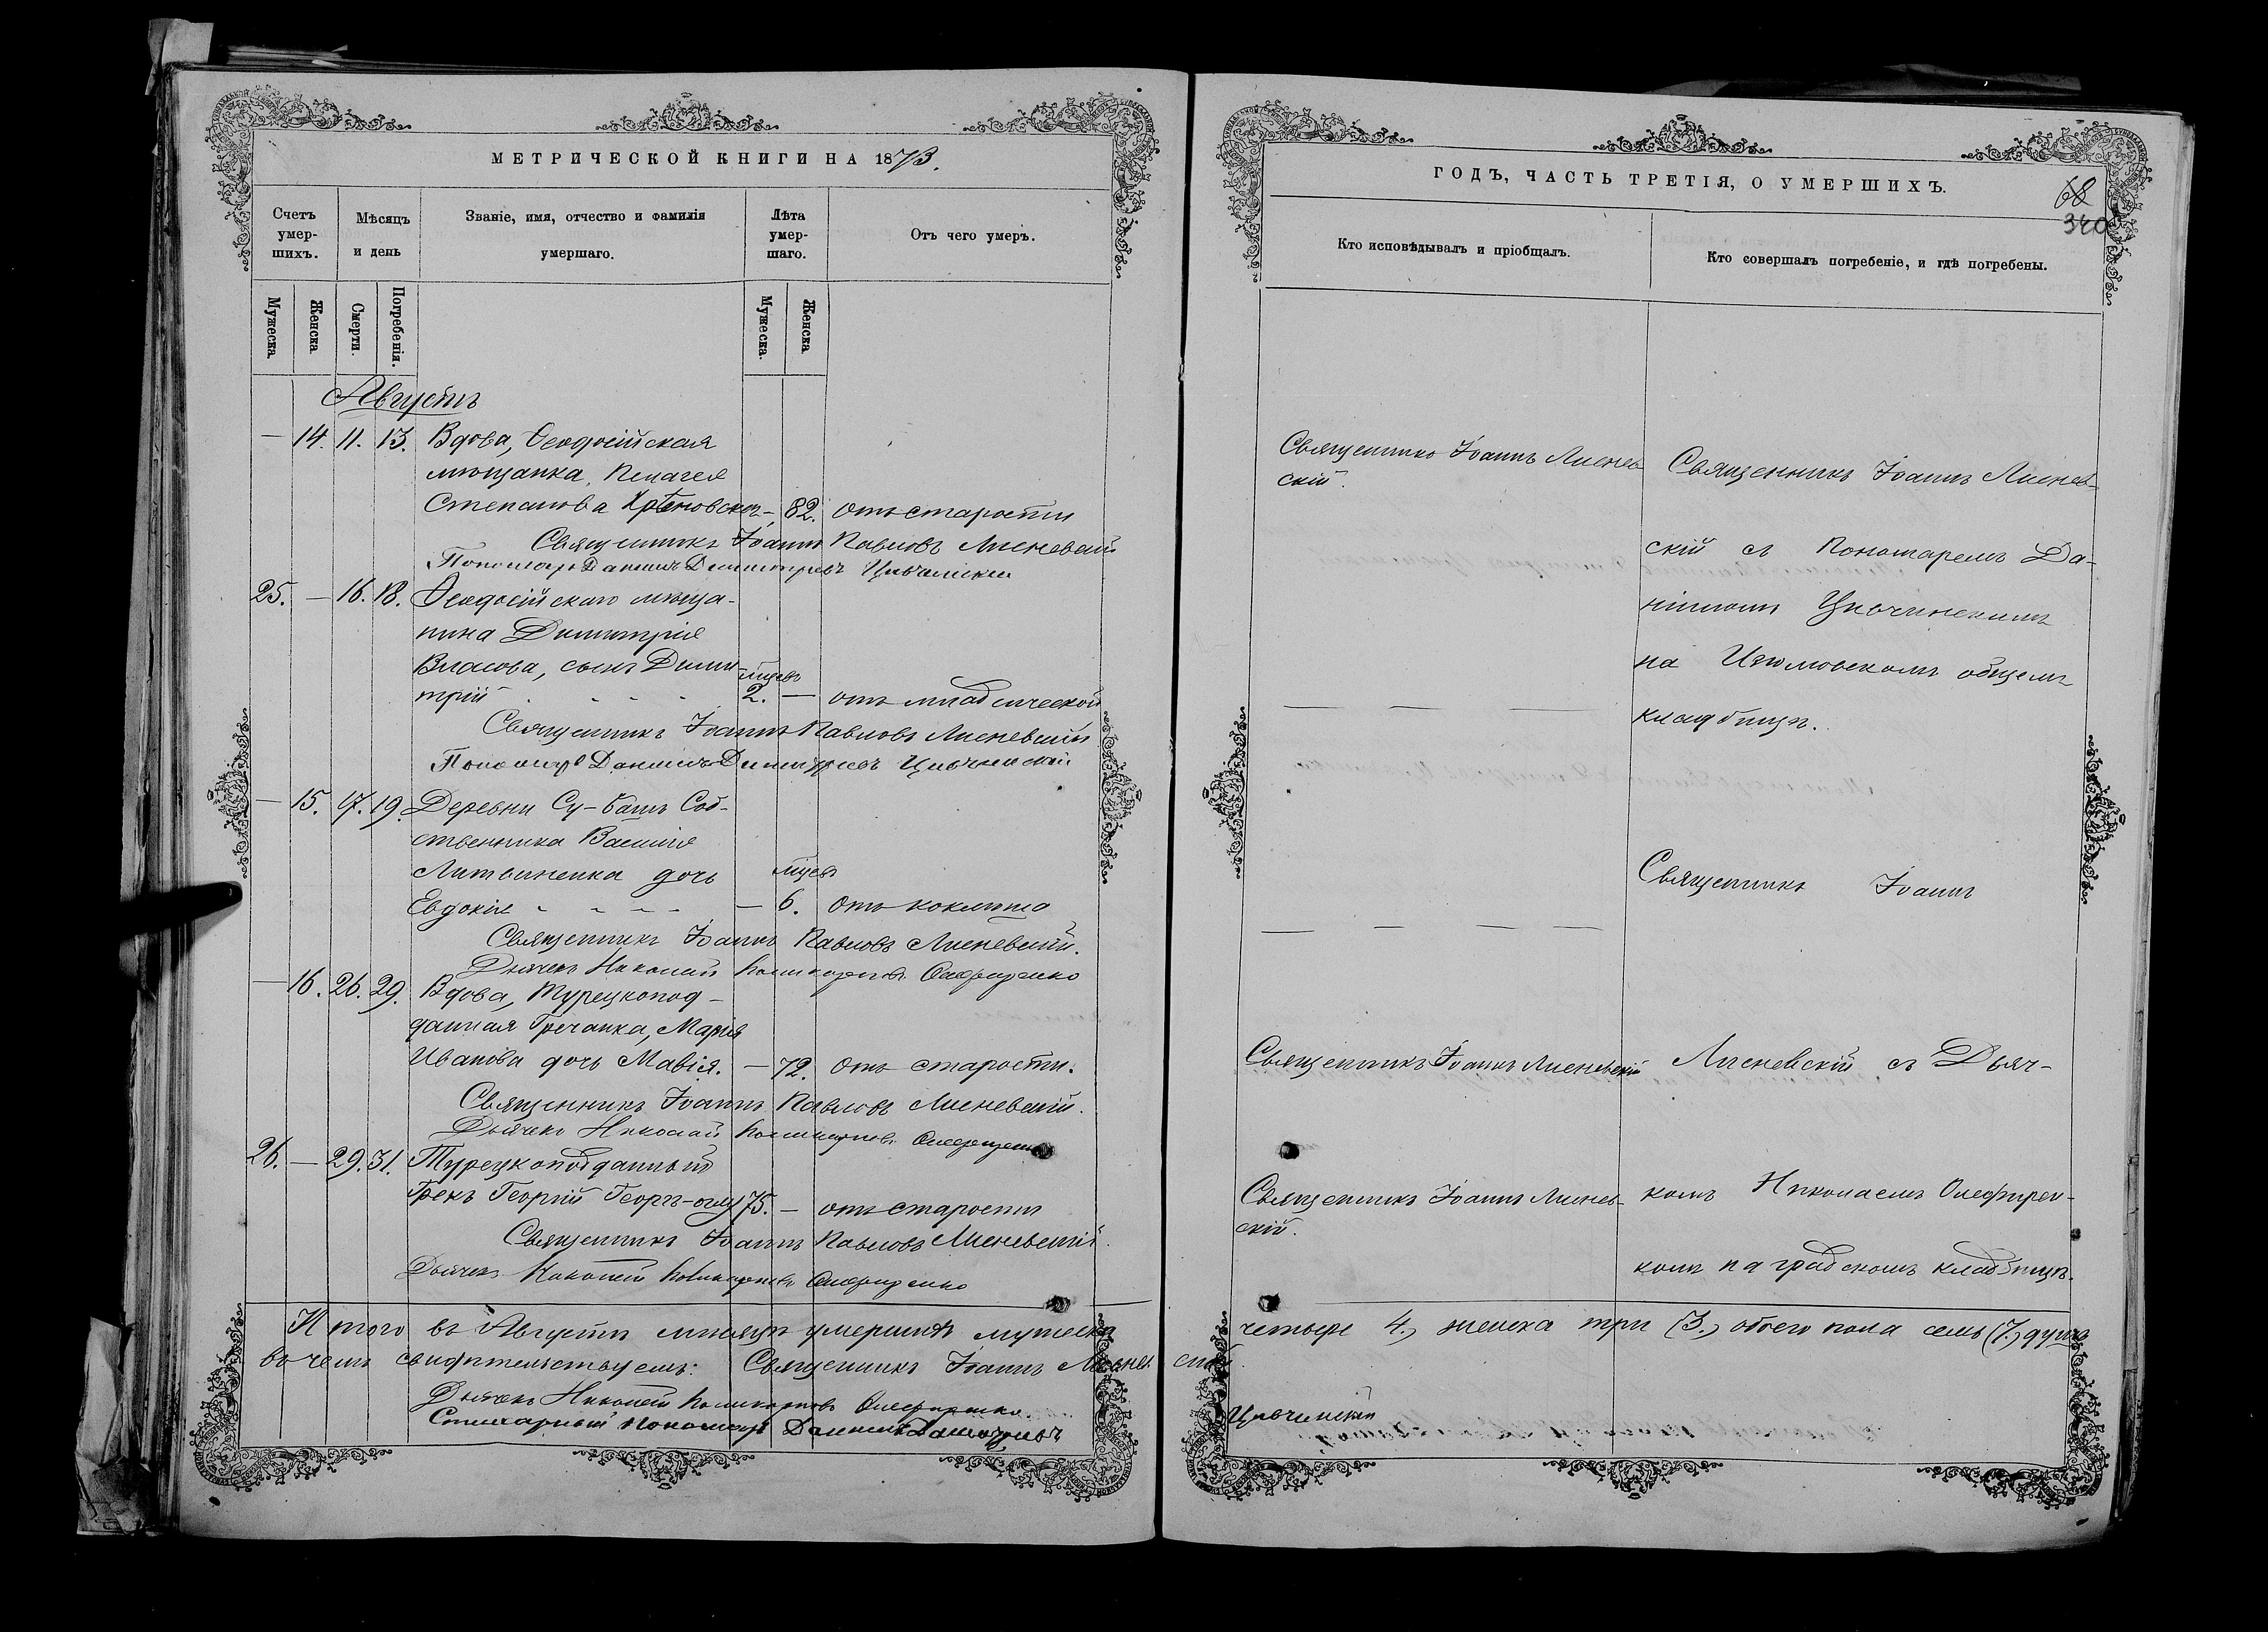 МЕТРИЧЕСКОЙ КНИГИ НА 1873.
Счетъ умер-шихъ.
Мѣсяцъ и день
Званіе, имя, отчество и фамилія умершаго.
Лѣта умер-шаго.
Отъ чего умеръ.
Мужеска
Женска
Смерти.
Погребенія.
Мужеска.
Женска
Августъ
— 14. 11. 13. Вдова, Ѳеодосійская
мѣщанка, Пелагея
Степанова — 82. отъ старости
Священникъ Іоаннъ Павловъ Лисневскій
Пономарь Даниилъ Димитріевъ
25. — 16. 18. Ѳеодосійскаго мѣща-
нина Димитрія
Власова, сынъ Дими-
трій - - - - мѣсяц. 2. — отъ младенческой
Священникъ Іоаннъ Павловъ Лисневскій
Пономарь Даниилъ Димитріевъ
— 15. 17. 19. Деревни Су-Башъ Соб-
ственника Василія
Литвиненка дочь
Евдокія - - - - — 6. Отъ коклюша
Священникъ Іоаннъ Павловъ Лисневскій.
Дьячекъ Николай Поликарповъ Олефиренко
— 16. 26. 29. Вдова, Турецкопод-
данная Гречанка, Марія
Иванова дочь Мавія. — 72. Отъ старости.
Священникъ Іоаннъ Павловъ Лисневскій.
Дьячекъ Николай Поликарповъ Олефиренко
26. — 29. 31. Турецкоподданный
Грекъ Георгій Георгъ-оглу 75. — отъ старости
Священникъ Іоаннъ Павловъ Лисневскій.
Дьячекъ Николай Поликарповъ Олефиренко
Итого въ Августѣ мѣсяцѣ умершихъ мужеска
въ чемъ свидѣтельствуемъ: Священникъ Іоаннъ Лисневскій
Дьячекъ Николай Поликарповъ Олефиренко.
Стихарный Пономарь Даниилъ Димитріевъ
ГОДЪ, ЧАСТЬ ТРЕТІЯ, О УМЕРШИХЪ.
68
340
Кто исповѣдывалъ и пріобщалъ.
Кто совершалъ погребеніе, и гдѣ погребены.
Священникъ Іоаннъ Лиснев-
скій.
Священникъ Іоаннъ Лиснев-
скій съ Пономаремъ Да-
ніиломъ
на Изюмовскомъ общемъ
кладбищѣ.
— — —
Священникъ Іоаннъ
— — — —
Священникъ Іоаннъ Лисневскій
Лисневскій съ Дьяч-
Священникъ Іоаннъ Лиснев-
скій.
комъ Николаемъ Олефирен-
комъ на градскомъ кладбищѣ.
четыре 4., женска три (3.) обоего пола семь (7.) душъ